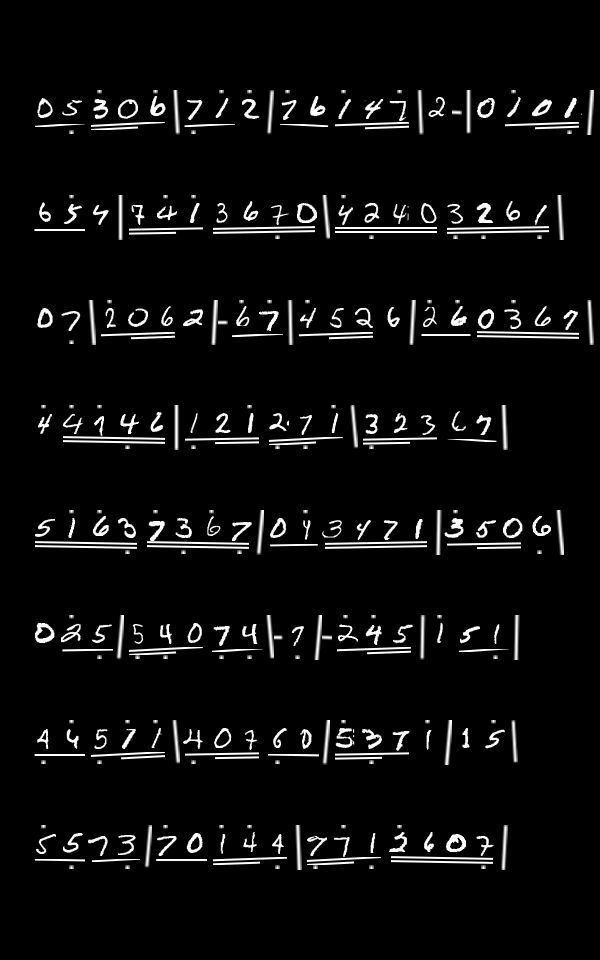 05306|712|76147|2-|0101|
654|741|3670|42403261|
07|2062|-67|4526|260367|
44746|121271|32367|
51637367|043471|3506|
025|54074|-7|-245|1|51|
44571|40760|5371|15|
5573|70144|7712607|